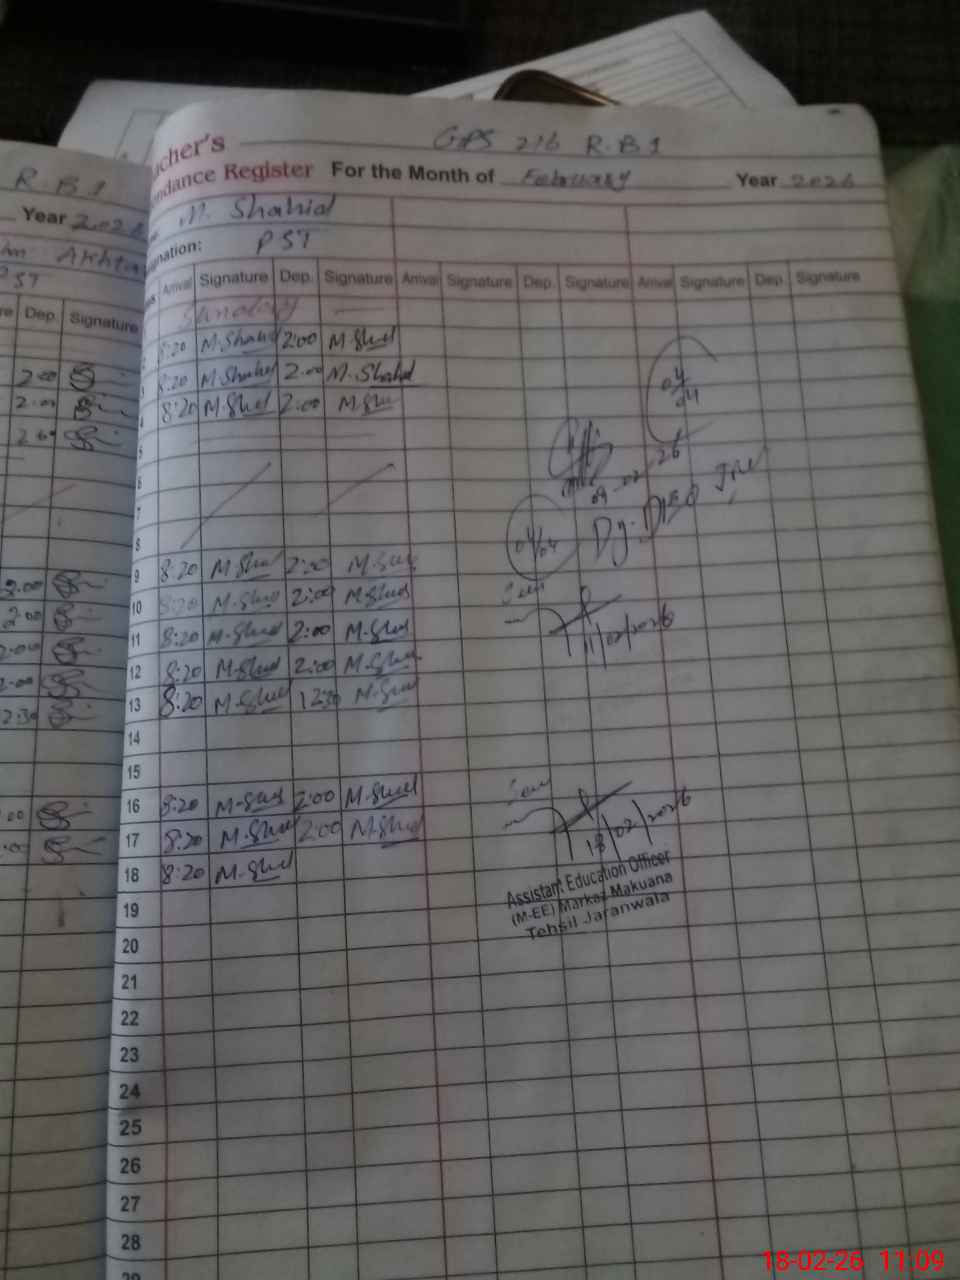 GPS 216 R.B 1
Teacher's
Attendance Register For the Month of February Year 2026
M. Shahid
Designation: PST
Arrival Signature Dep. Signature Arrival Signature Dep. Signature Arrival Signature Dep. Signature
Sunday
2 8:20 M.Shahid 2:00 M.Shd
3 8:20 M.Shahid 2:00 M.Shahid
4 8:20 M.Shd 2:00 M.Shd
5
6
7
8
9 8:20 M.Shd 2:00 M.Shd
10 8:20 M.Shd 2:00 M.Shd
11 8:20 M.Shd 2:00 M.Shd
12 8:20 M.Shd 2:00 M.Shd
13 8:20 M.Shd 12:30 M.Shd
14
15
16 8:20 M.Shd 2:00 M.Shd
17 8:20 M.Shd 2:00 M.Shd
18 8:20 M.Shd
19
20
21
22
23
24
25
26
27
28
29
04/04
09-02-26
04/04 Dy. DEO
Seen
11/02/2026
Seen
18/02/2026
Assistant Education Officer
(M-EE) Markaz Makuana
Tehsil Jaranwala
R.B.1
Year 2026
Akhtar
PST
Dep. Signature
2:00
2:00
2:00
2:00
2:00
2:00
2:00
12:30
18-02-26 11:09